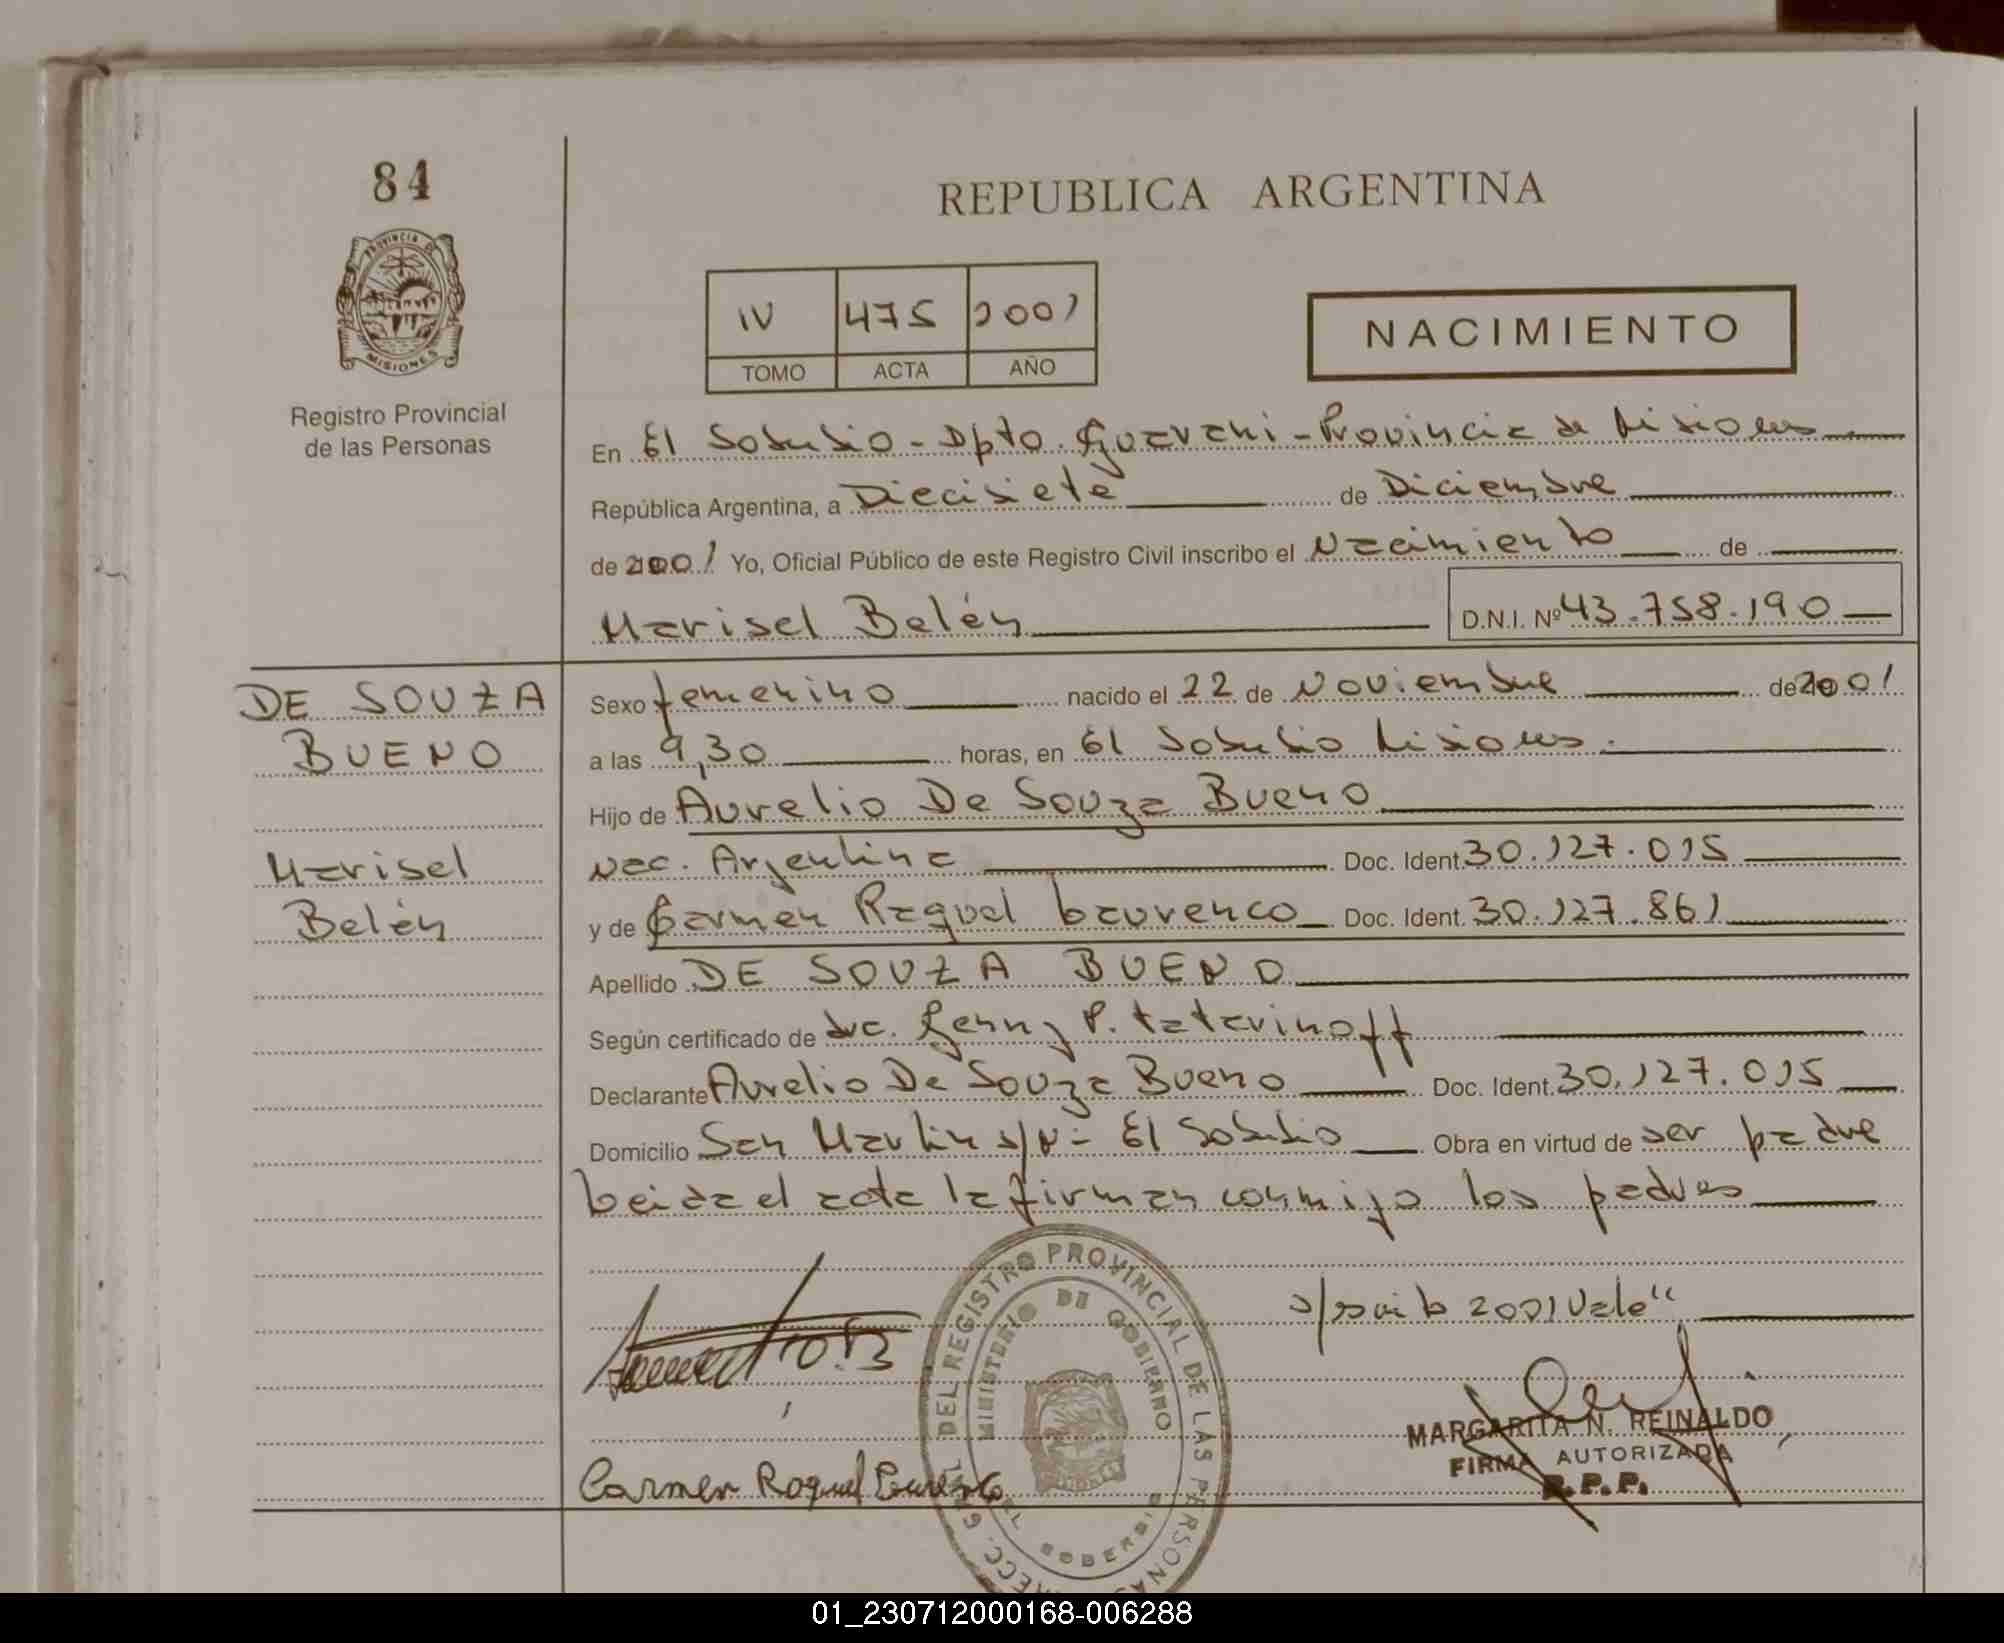 84
REPUBLICA ARGENTINA
PROVINCIA DE
MISIONES
Registro Provincial
de las Personas
IV 475 2001
TOMO ACTA AÑO
NACIMIENTO
En El Soberbio - Dpto. Guarani - Provincia de Misiones
República Argentina, a Diecisiete de Diciembre
de 2001 Yo, Oficial Público de este Registro Civil inscribo el Nacimiento de
Marisel Belén D.N.I. Nº 43.758.190
DE SOUZA
BUENO
Marisel
Belén
Sexo femenino nacido el 22 de Noviembre de 2001
a las 9,30 horas, en El Soberbio Misiones.
Hijo de Aurelio De Souza Bueno
Nac. Argentina Doc. Ident. 30.127.015
y de Carmen Raquel Laurenco Doc. Ident. 30.127.861
Apellido DE SOUZA BUENO
Según certificado de dra. Jenny P. Tatarinoff
Declarante Aurelio De Souza Bueno Doc. Ident. 30.127.015
Domicilio San Martin s/Nº El Soberbio Obra en virtud de ser padre
Leida el acta la firman conmigo los padres
2001 Vale"
DEL REGISTRO PROVINCIAL DE LAS PERSONAS
MINISTERIO DE GOBIERNO
EL SOBERBIO
MARGARITA N. REINALDO
FIRMA AUTORIZADA
R.P.P.
Carmen Raquel Laurenco
01_230712000168-006288